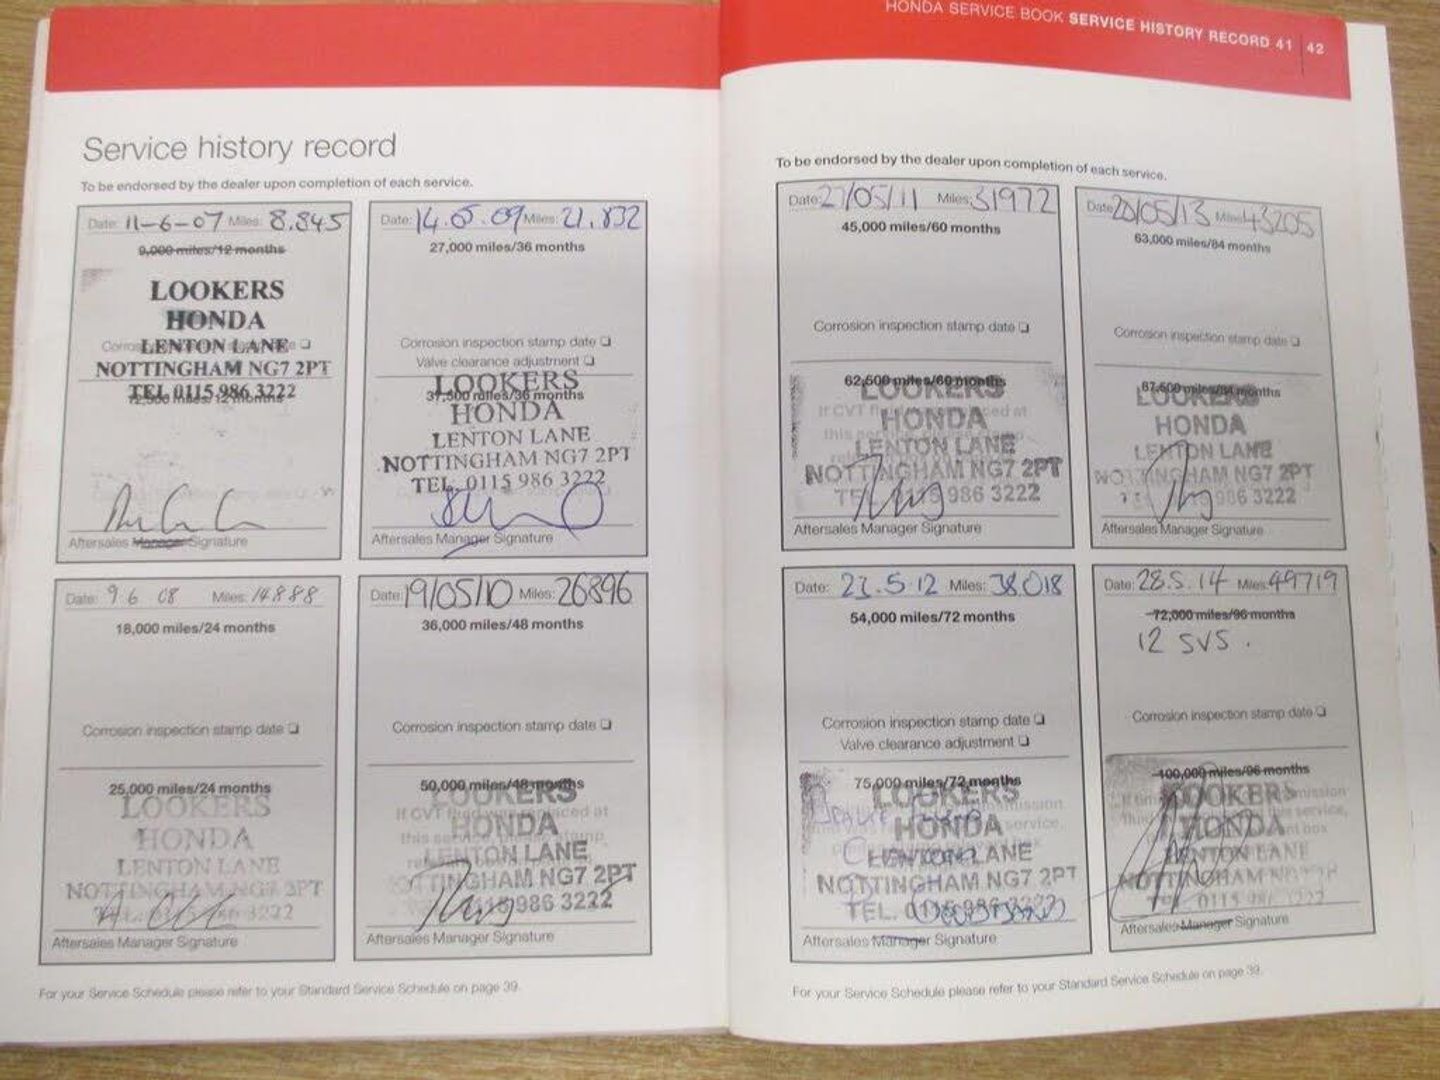 HONDA SERVICE BOOK SERVICE HISTORY RECORD 41 | 42
Service history record
To be endorsed by the dealer upon completion of each service.
Date: 11-6-07 Miles: 8.845
9,000 miles/12 months
LOOKERS
HONDA
LENTON LANE
NOTTINGHAM NG7 2PT
TEL 0115 986 3222
Aftersales Manager Signature
Date: 14.05.09 Miles: 21.832
27,000 miles/36 months
Corrosion inspection stamp date ❏
Valve clearance adjustment ❏
LOOKERS
37,500 miles/36 months
HONDA
LENTON LANE
NOTTINGHAM NG7 2PT
TEL 0115 986 3222
Aftersales Manager Signature
Date: 9 6 08 Miles: 14888
18,000 miles/24 months
Corrosion inspection stamp date ❏
25,000 miles/24 months
LOOKERS
HONDA
LENTON LANE
NOTTINGHAM NG7 2PT
Aftersales Manager Signature
Date: 19/05/10 Miles: 26896
36,000 miles/48 months
Corrosion inspection stamp date ❏
50,000 miles/48 months
LOOKERS
HONDA
LENTON LANE
NOTTINGHAM NG7 2PT
986 3222
Aftersales Manager Signature
For your Service Schedule please refer to your Standard Service Schedule on page 39.
To be endorsed by the dealer upon completion of each service.
Date: 27/05/11 Miles: 31972
45,000 miles/60 months
Corrosion inspection stamp date ❏
62,500 miles/60 months
LOOKERS
HONDA
LENTON LANE
NOTTINGHAM NG7 2PT
986 3222
Aftersales Manager Signature
Date: 20/05/13 Miles: 43205
63,000 miles/84 months
Corrosion inspection stamp date ❏
87,500 miles/84 months
LOOKERS
HONDA
LENTON LANE
NOTTINGHAM NG7 2PT
986 3222
Aftersales Manager Signature
Date: 23.5.12 Miles: 38018
54,000 miles/72 months
Corrosion inspection stamp date ❏
Valve clearance adjustment ❏
75,000 miles/72 months
LOOKERS
HONDA
LENTON LANE
NOTTINGHAM NG7 2PT
TEL.
Aftersales Manager Signature
Date: 28.5.14 Miles: 49719
72,000 miles/96 months
12 SVS.
Corrosion inspection stamp date ❏
100,000 miles/96 months
LOOKERS
HONDA
LENTON LANE
NOTTINGHAM
0115
Aftersales Manager Signature
For your Service Schedule please refer to your Standard Service Schedule on page 39.